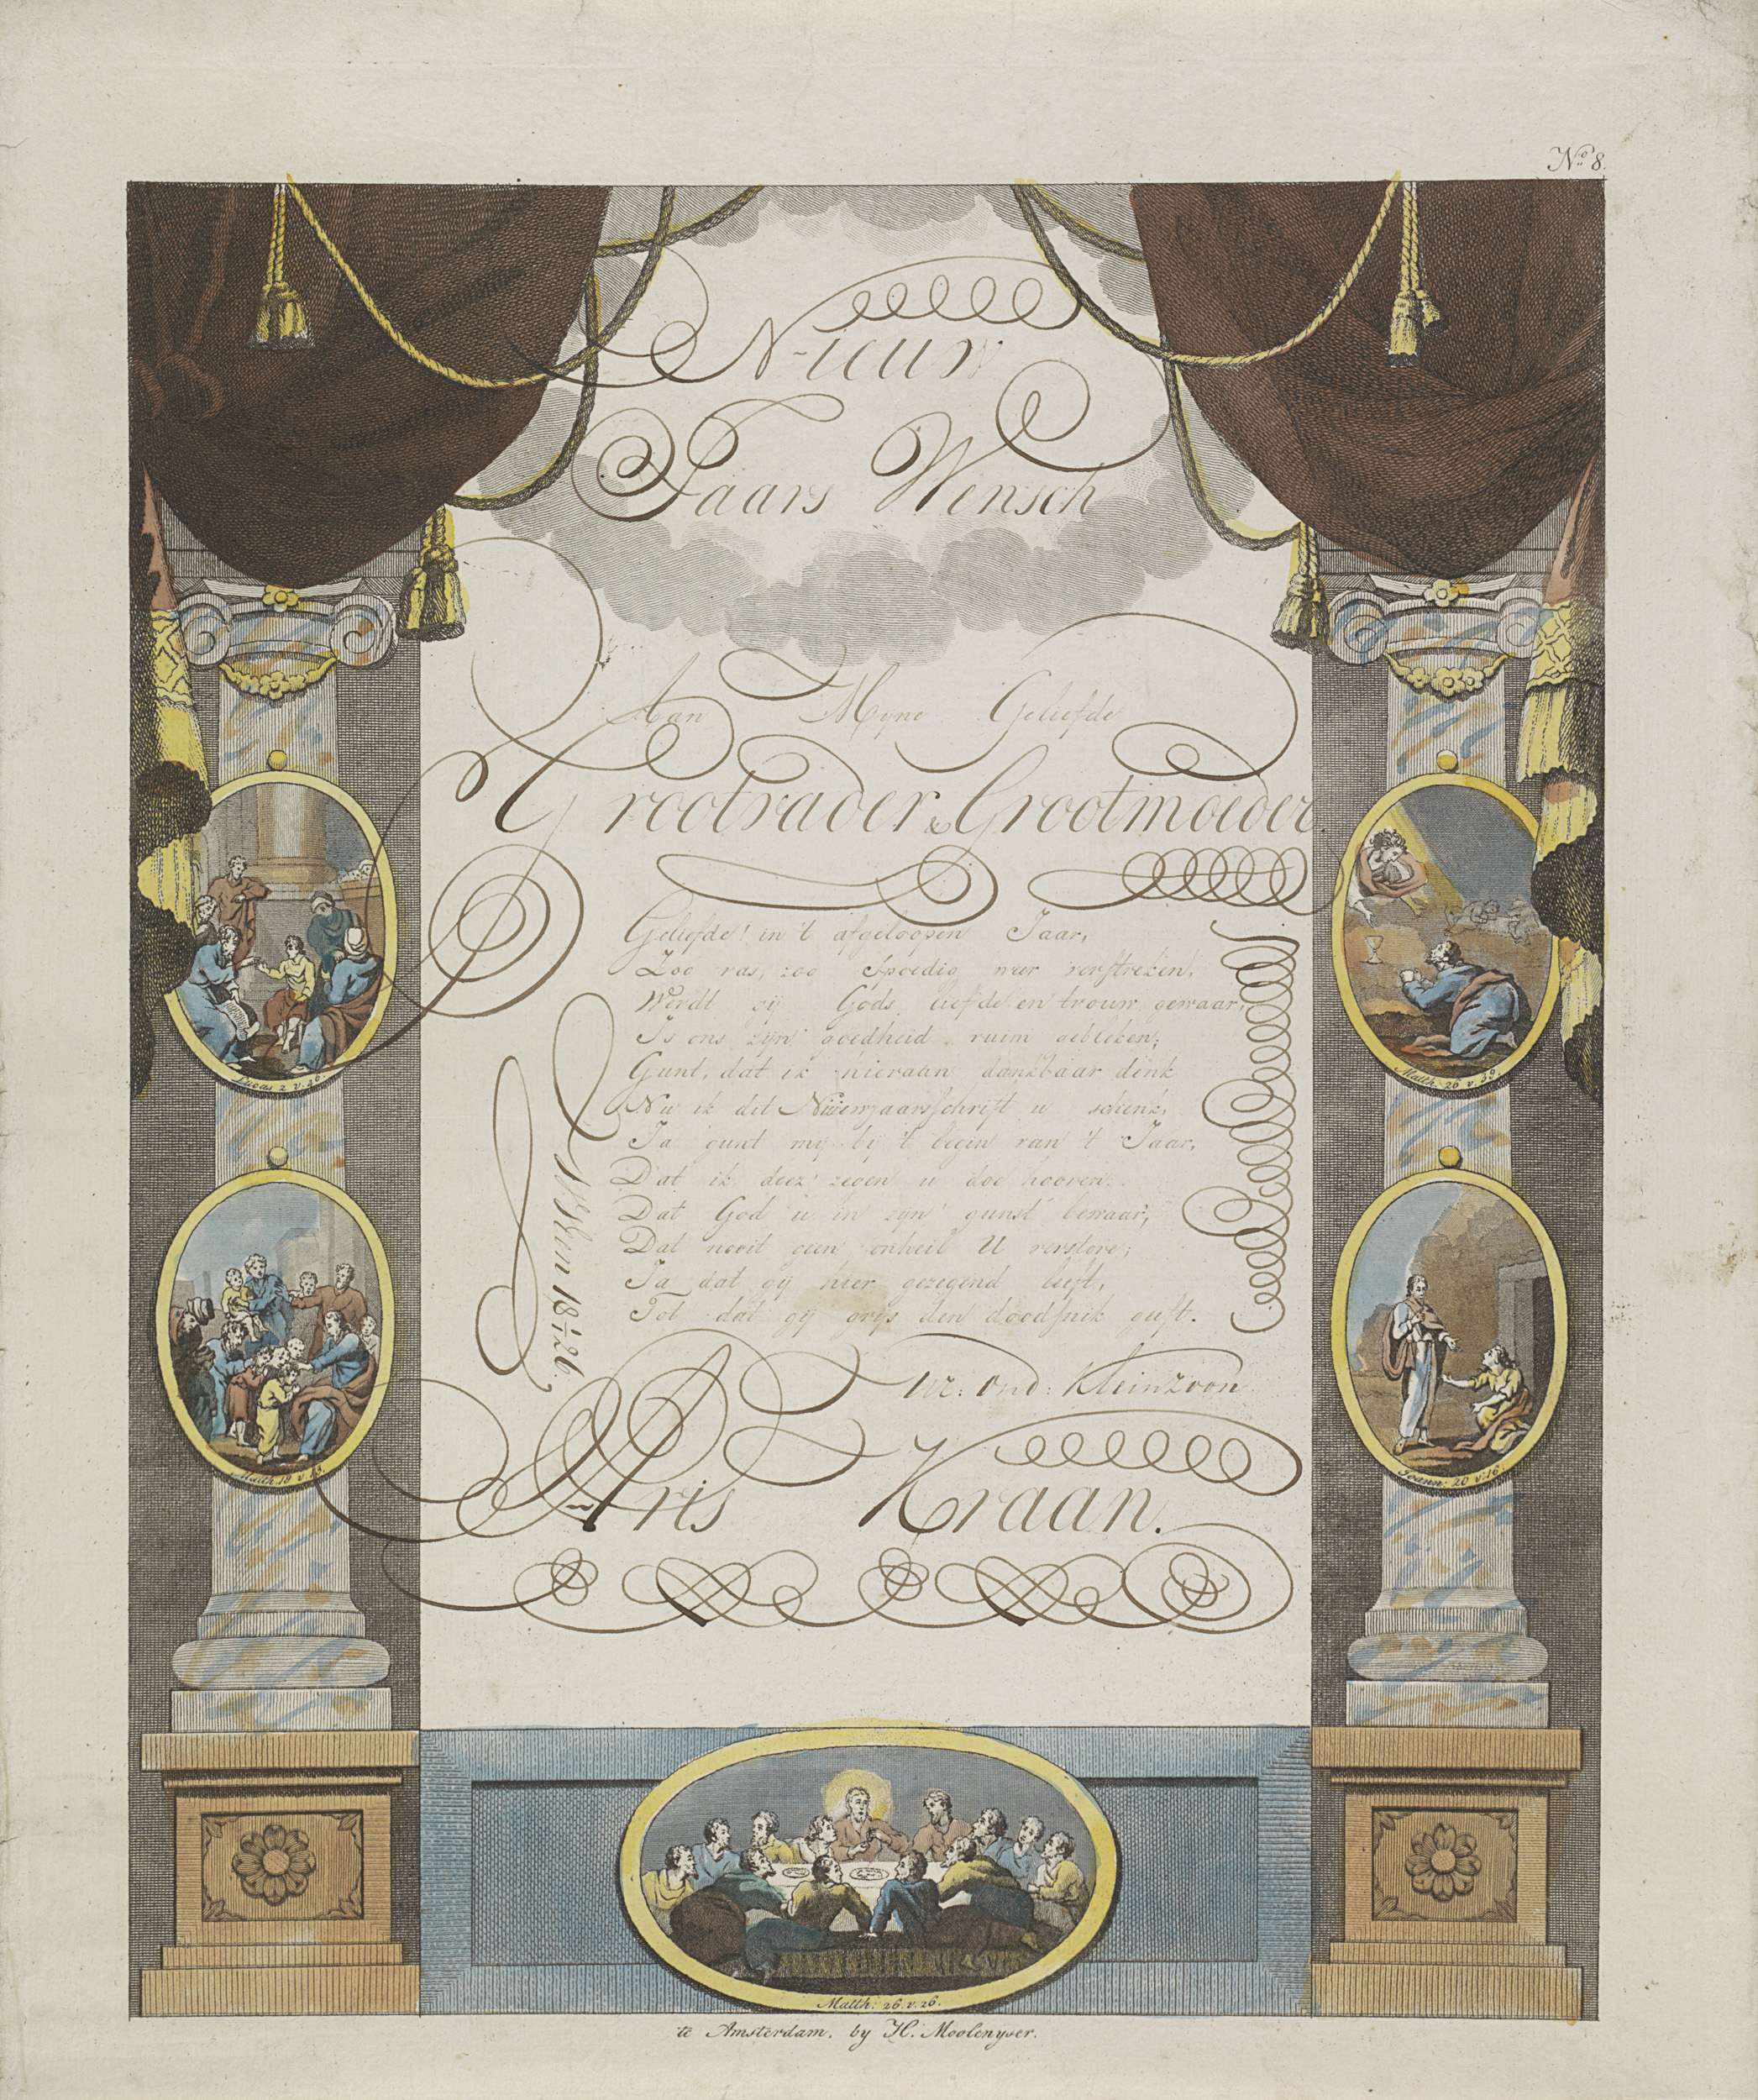 No 8.
Nieuw
Jaars Wensch
Aan Myne Geliefde
Grootvader & Grootmoeder.
Geliefde! in 't afgeloopen Jaar,
Zoo ras, zoo spoedig weer verstreken,
Werdt gij Gods liefde en trouw gewaar,
Is ons zijn' goedheid ruim gebleken;
Gunt, dat ik hieraan dankbaar denk
Nu ik dit Nieuwjaarsschrift u schenk,
Ja gunt mij bij 't begin van 't Jaar,
Dat ik deez' zegen u doe hooren.
Dat God u in zijn' gunst bewaar',
Dat nooit geen onheil U verstore;
Ja dat gij hier gezegend leeft,
Tot dat gij grijs den doodsnik geeft.
den 18 1/1 26.
Uw: Ond: Kleinzoon
Aris Kraan.
Lucas 2 v. 46.
Matth. 19 v. 13.
Matth. 26 v. 39.
Joann: 20 v: 16.
Matth: 26 v. 26.
te Amsterdam, by H. Moolenyser.